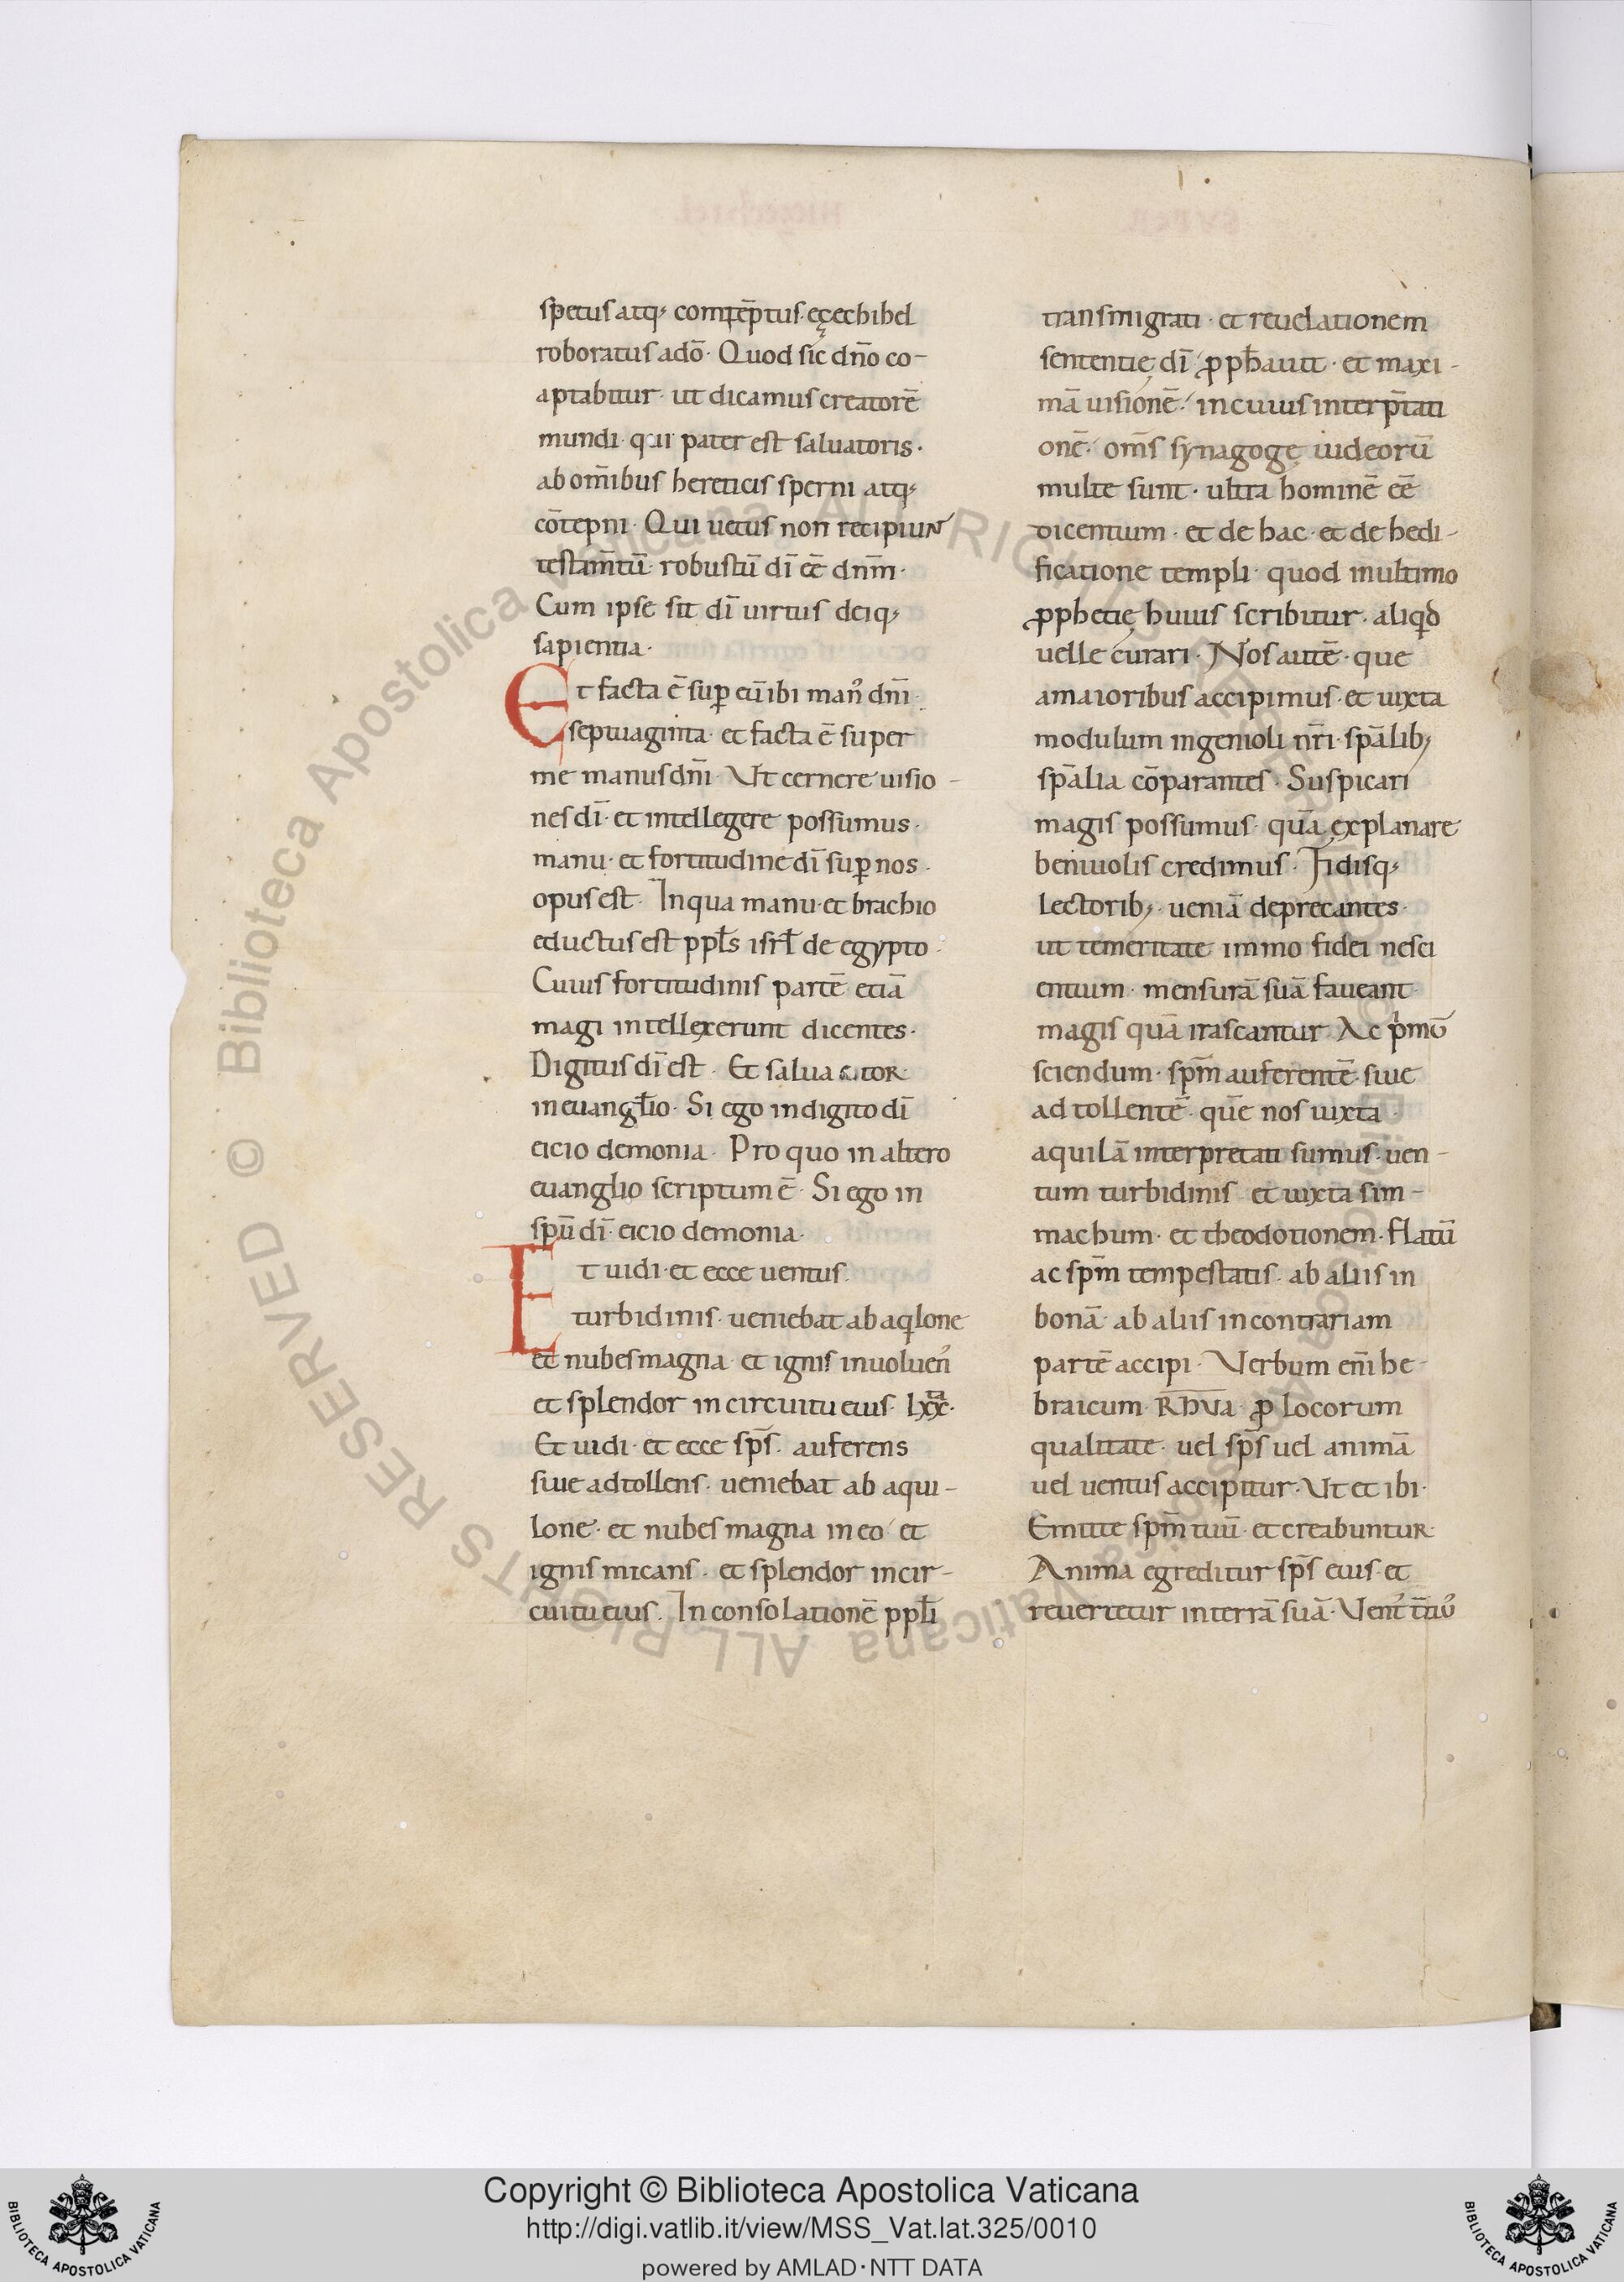 spetus atq; comtēptus· eçechihel
roboratus adō· Quod sic dn̄o co-
aptabitur· ut dicamus creatorē
mundi· qui pater est saluatoris·
ab om̄ibus hereticis sperni atq;
cōtepni· Qui uetus non recipiunt
testam̄tū· robustū dī eē dnm̄·
Cum ipse sit dī uirtus deiq;
sapientia·
Et facta ē sup̱ eū ibi man᾽ dn̄i·
septuaginta· et facta ē super
me manus dn̄i· Vt cernere uisio-
nes dī· et intellegere possumus·
manu· et fortitudine dī sup̱ nos·
opus est· In qua manu· et brachio
eductus est ppl̄s isrl̄ de egypto·
Cuius fortitudinis partē etiā
magi intellexerunt dicentes·
Digitus dī est· Et salua tor
in euangl̄io· Si ego in digito dī
eicio demonia· Pro quo in altero
euanglio scriptum ē· Si ego in
spū dī· eicio demonia·
Et uidi· et ecce uentus·
turbidinis· ueniebat ab aqlone
et nubes magna· et ignis inuoluen᾽
et splendor in circuitu eius· lxx̄·
Et uidi· et ecce sps̄· auferens
siue adtollens· ueniebat ab aqui-
lone· et nubes magna in eo· et
ignis micans· et splendor in cir-
cuitu eius· In consolationē ppl̄i
transmigrati· et reuelationem
sententię dī ꝓph̄auit· et maxi-
mā uisionē· in cuius interp̄tati
onē· om̄s synagogę iudeorū
multe sunt· ultra hominē eē
dicentium· et de hac· et de hedi-
ficatione templi· quod in ultimo
ꝓphetię huius scribitur· aliqd
uelle curari· Nos autē· que
a maioribus accipimus· et iuxta
modulum ingenioli nr̄i· spālib;
spālia cōparantes· Suspicari
magis possumus· quā explanare
beniuolis credimus· Fidisq;
lectorib;· ueniā deprecantes·
ut temeritate immo fidei nesci
entium· mensurā suā faueant·
magis quā irascantur· Ac pmū
sciendum· spm̄ auferentē· siue
adtollentē· quē nos iuxta
aquilā interpretati sumus· uen-
tum turbidinis· et iuxta sim-
machum· et theodotionem· flatū
ac spm̄ tempestatis· ab aliis in
bonā· ab aliis in contrariam
partē accipi· Verbum eni̅ he-
braicum· Rhva· ꝓ locorum
qualitate· uel sps̄ uel animā
uel uentus accipitur· Vt et ibi·
Emitte spm̄ tuū· et creabuntur·
Anima egreditur sps̄ eius· et
reuertetur in terrā suā· Vent᾽
Copyright © Biblioteca Apostolica Vaticana
http://digi.vatlib.it/view/MSS_Vat.lat.325/0010
powered by AMLAD·NTT DATA
BIBLIOTECA APOSTOLICA VATICANA
BIBLIOTECA APOSTOLICA VATICANA
© Biblioteca Apostolica Vaticana ALL RIGHTS RESERVED © Biblioteca Apostolica Vaticana ALL RIGHTS RESERVED